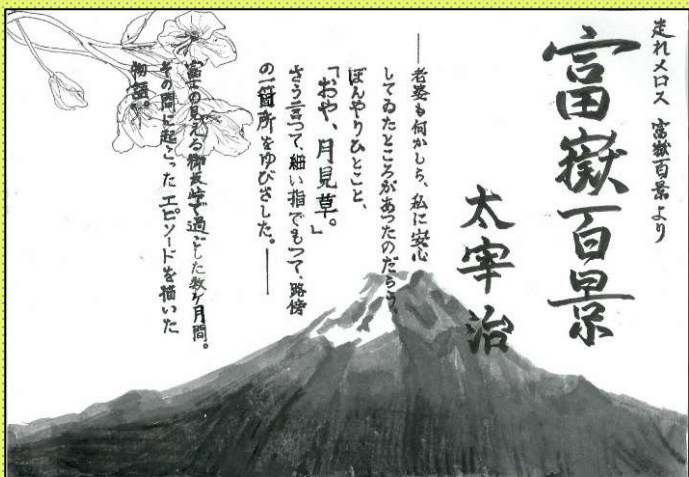 走れメロス 富嶽百景より
富嶽百景
太宰治
――老婆も何かしら、私に安心
してゐたところがあつたのだらう、
ぼんやりひとこと、
「おや、月見草。」
さう言つて、細い指でもつて、路傍
の一箇所をゆびさした。――
富士の見える御坂峠で過ごした数ケ月間。
その間に起こったエピソードを描いた
物語。